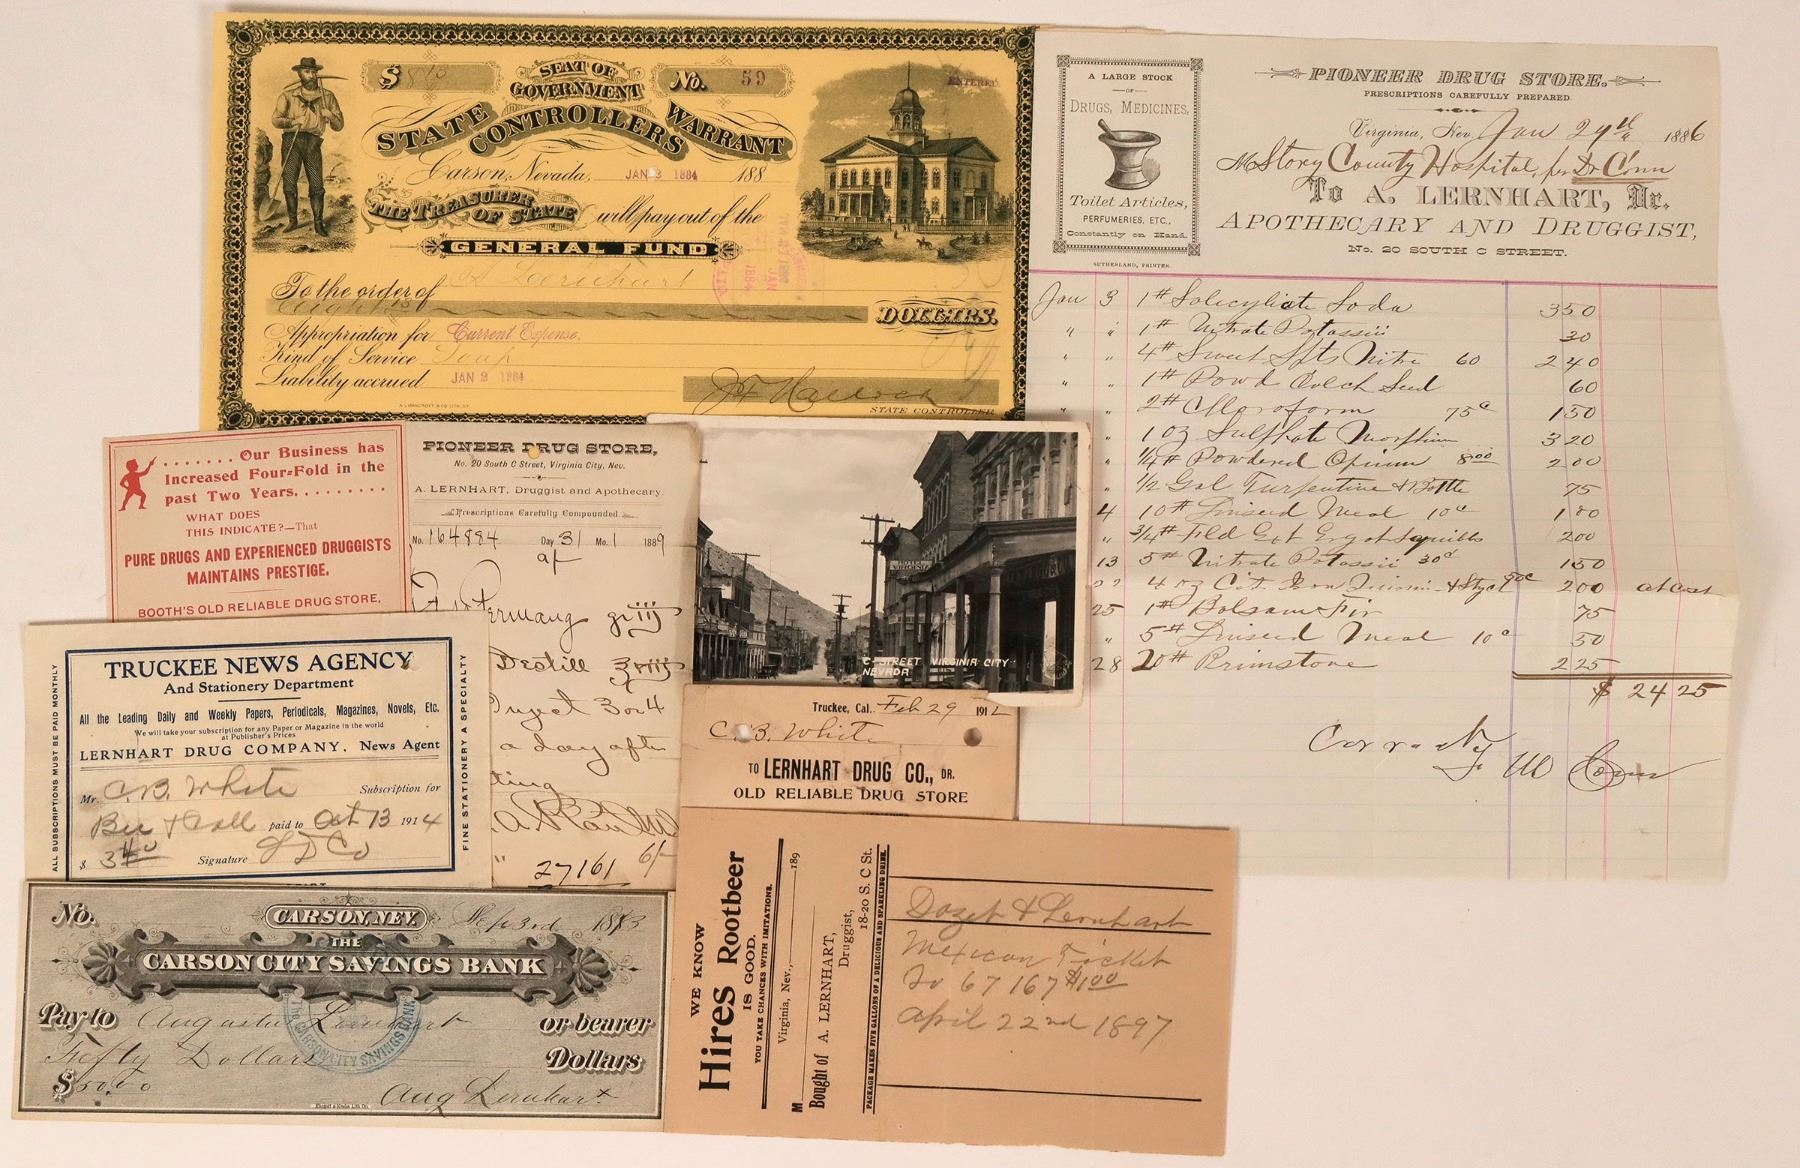 $ 8 10/
SEAT OF GOVERNMENT
No. 59
ENTERED
STATE CONTROLLERS WARRANT
Carson, Nevada, JAN 3 1884 188
THE TREASURER OF STATE will pay out of the
GENERAL FUND
To the order of A Lernhart
Eight DOLLARS.
Appropriation for Current Expense.
Kind of Service Soap
Liability accrued JAN 2 1884
J F Hallock
STATE CONTROLLER
A LARGE STOCK
OF
DRUGS, MEDICINES,
Toilet Articles,
PERFUMERIES, ETC.,
Constantly on Hand.
SUTHERLAND, PRINTER
PIONEER DRUG STORE.
PRESCRIPTIONS CAREFULLY PREPARED.
Virginia, Nev. Jan 29th 1886
M Story County Hospital, per Dr Conn
To A. LERNHART, Dr.
APOTHECARY AND DRUGGIST,
No. 20 SOUTH C STREET.
Jan 3 1# Salicyliate Soda 350
" " 1# Nitrate Potassii 30
" " 4# Sweet Spts Nitre 60 240
" " 1# Powd Colch Seed 60
" " 2# Chloroform 75c 150
" 1 oz Sulphate Morphium 320
" 1/4# Powdered Opium 800 200
" 1/2 Gal Turpentine & Bottle 75
4 10# Linseed Meal 10c 100
" 3/4# Fld Ext Ergot Squibbs 200
13 5# Nitrate Potassii 30c 150
22 4 oz Cit Iron Quinin & Strych 50c 200 at Cost
25 1# Balsam Fir 75
" 5# Linseed Meal 10c 50
28 20# Brimstone 225
$ 2425
W Conn
....... Our Business has
Increased Four-Fold in the
past Two Years. .........
WHAT DOES
THIS INDICATE?—That
PURE DRUGS AND EXPERIENCED DRUGGISTS
MAINTAINS PRESTIGE.
BOOTH'S OLD RELIABLE DRUG STORE,
PIONEER DRUG STORE,
No. 20 South C Street, Virginia City, Nev.
A. LERNHART, Druggist and Apothecary.
Prescriptions Carefully Compounded.
No. 164884 Day 31 Mo. 1 1889
Permang griiij
Destill
Inject 3 or 4
a day after
27161 6/-
C-STREET VIRGINIA CITY
NEVADA
TRUCKEE NEWS AGENCY
And Stationery Department
All the Leading Daily and Weekly Papers, Periodicals, Magazines, Novels, Etc.
We will take your subscription for any Paper or Magazine in the world
at Publisher's Prices
LERNHART DRUG COMPANY, News Agent
Mr. C. B. White Subscription for
Bee & Call paid to Oct 13 1914
$ 3 40 Signature L D Co
ALL SUBSCRIPTIONS MUST BE PAID MONTHLY
FINE STATIONERY A SPECIALTY
Truckee, Cal. Feb 29 1912
C. B. White
TO LERNHART DRUG CO., DR.
OLD RELIABLE DRUG STORE
No. CARSON, NEV. Sep 3rd 1883
THE
CARSON CITY SAVINGS BANK
Pay to Augusta Lernhart or bearer
Fifty Dollars Dollars
$ 50.00
Aug Lernhart
THE CARSON CITY SAVINGS BANK
WE KNOW
Hires Rootbeer
IS GOOD.
YOU TAKE CHANCES WITH IMITATIONS.
Virginia, Nev., 189
M
Bought of A. LERNHART,
Druggist,
18-20 S. C St.
PACKAGE MAKES FIVE GALLONS OF A DELICIOUS AND SPARKLING DRINK.
Dozet & Lernhart
Mexican Ticket
No 67167 $1.00
April 22nd 1897